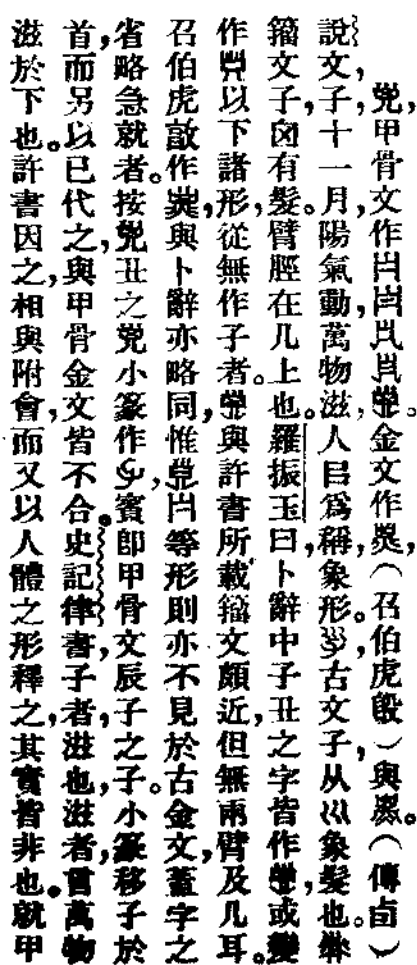 甲骨文作金文作(召伯虎𣪘)與(傳卣)
說文,子,十一月,陽氣動,萬物滋,人㠯爲稱,象形。古文子,从巛象髮也。
籀文子,囟有髮。臂脛在几上也。羅振玉曰,卜辭中子丑之字皆作或
作以下諸形,從無作子者。與許書所載籀文頗近,但無兩臂及几耳。
召伯虎敦作,與卜辭亦略同,惟等形則亦不見於古金文,蓋字之
省略急就者。按丑之小篆作,實卽甲骨文辰,子之子。小篆移子於
首,而另以巳代之,與甲骨金文皆不合。史記律書,子者,滋也,滋者,言萬物
滋於下也。許書因之,相與附會,而又以人體之形釋之,其實皆非也。就甲